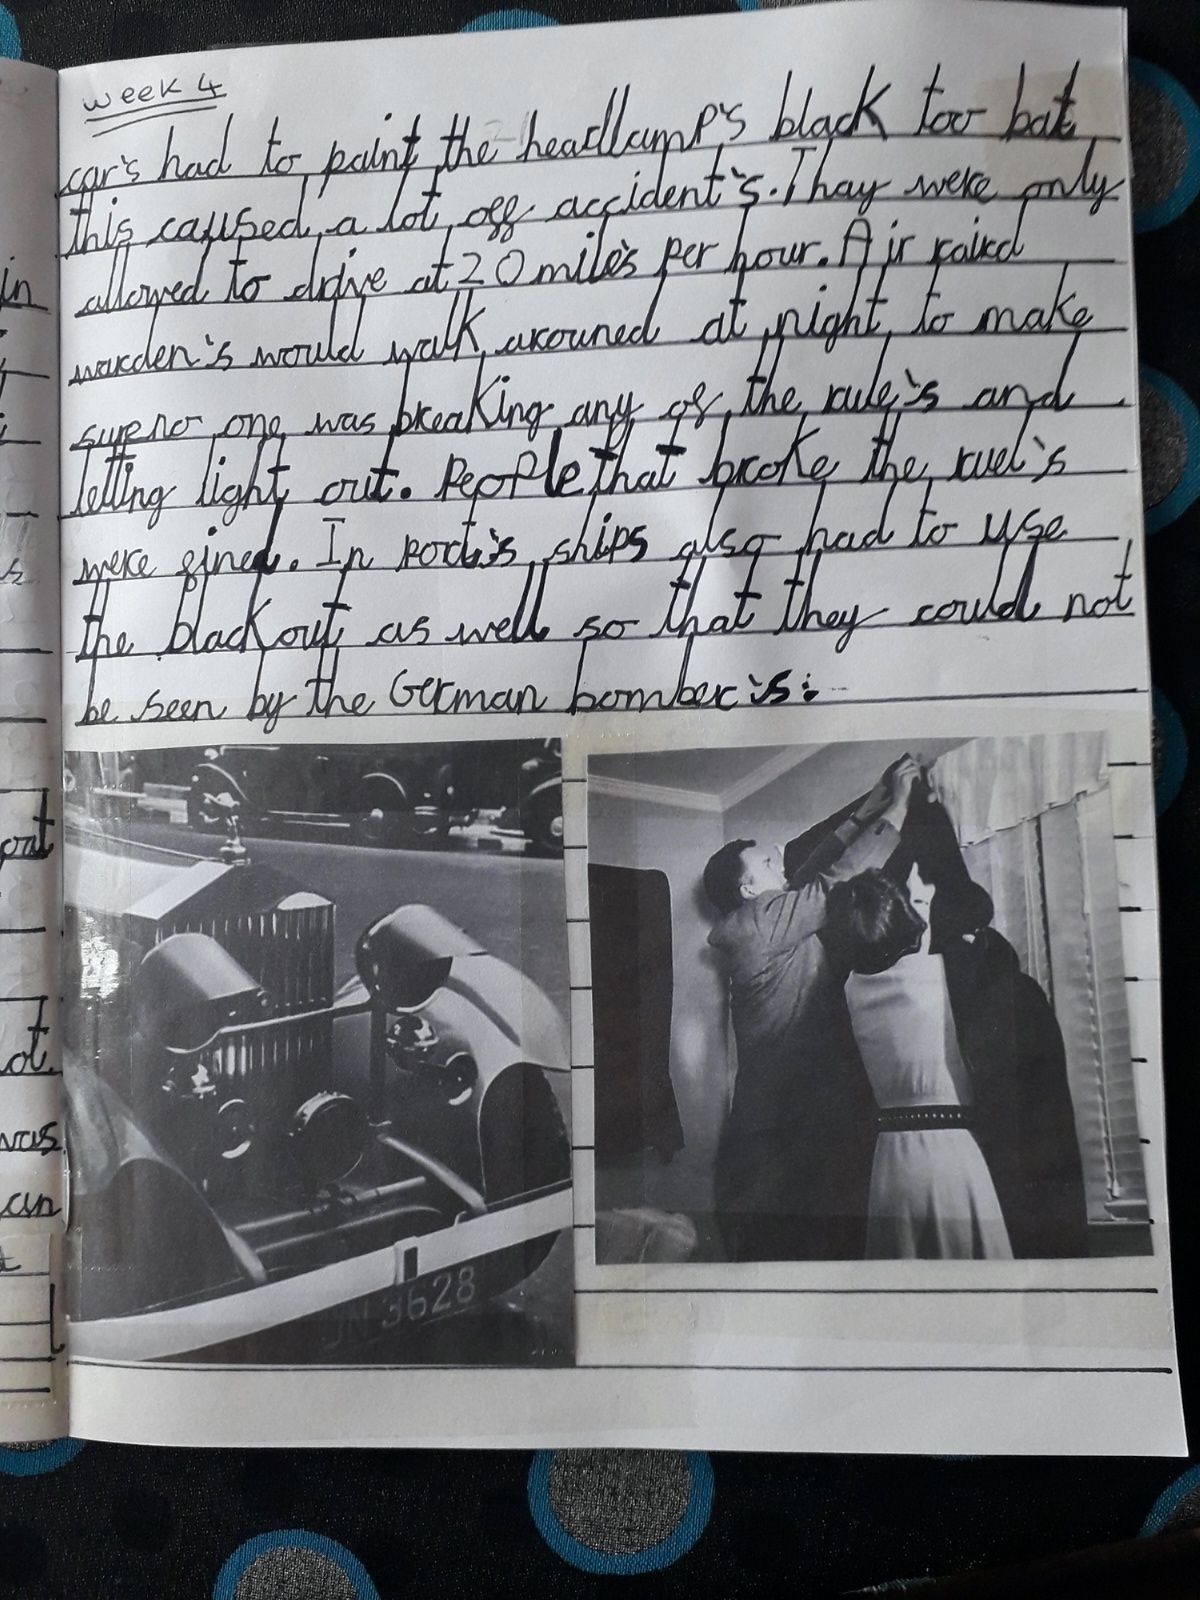 week 4
car's had to paint the headlamp's black too bat
this caused a lot off accident's. Thay were only
allowed to drive at 20 mile's per hour. Air raird
warden's would walk arouned at night to make
sure no one was breaking any of the rule's and
letting light out. People that broke the ruel's
were fined. In port's ships also had to use
the blackout as well so that they could not
be seen by the German bomber's.
in
ot
was
an
3628